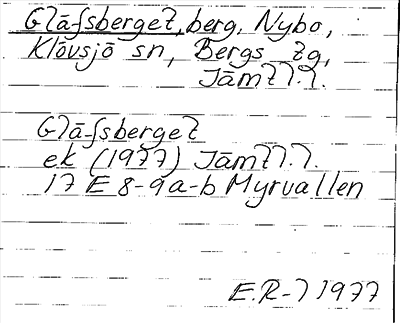 Glāfsberget, berg, Nybo,
Klövsjö sn, Bergs tg,
Jämtl.l.
Glāfsberget
ek (1977) Jämtl.l.
17 E 8-9a-b Myrvallen
E.R-l 1977